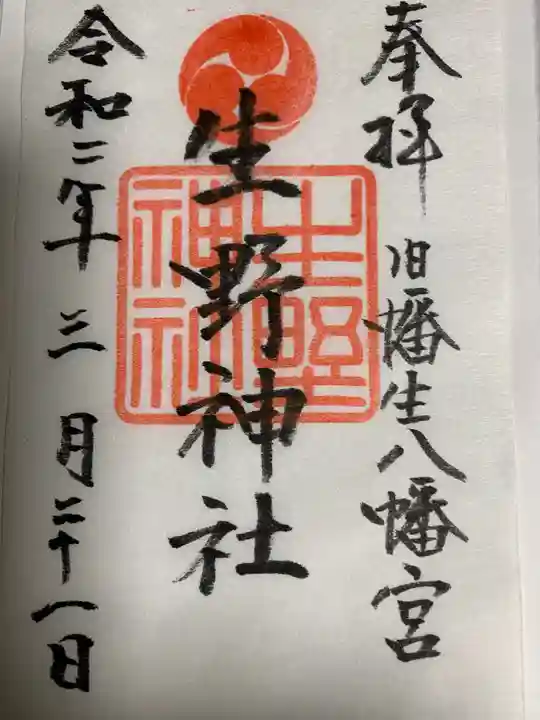 奉拝 旧幡生八幡宮
生野神社
生野神社
令和二年三月二十一日